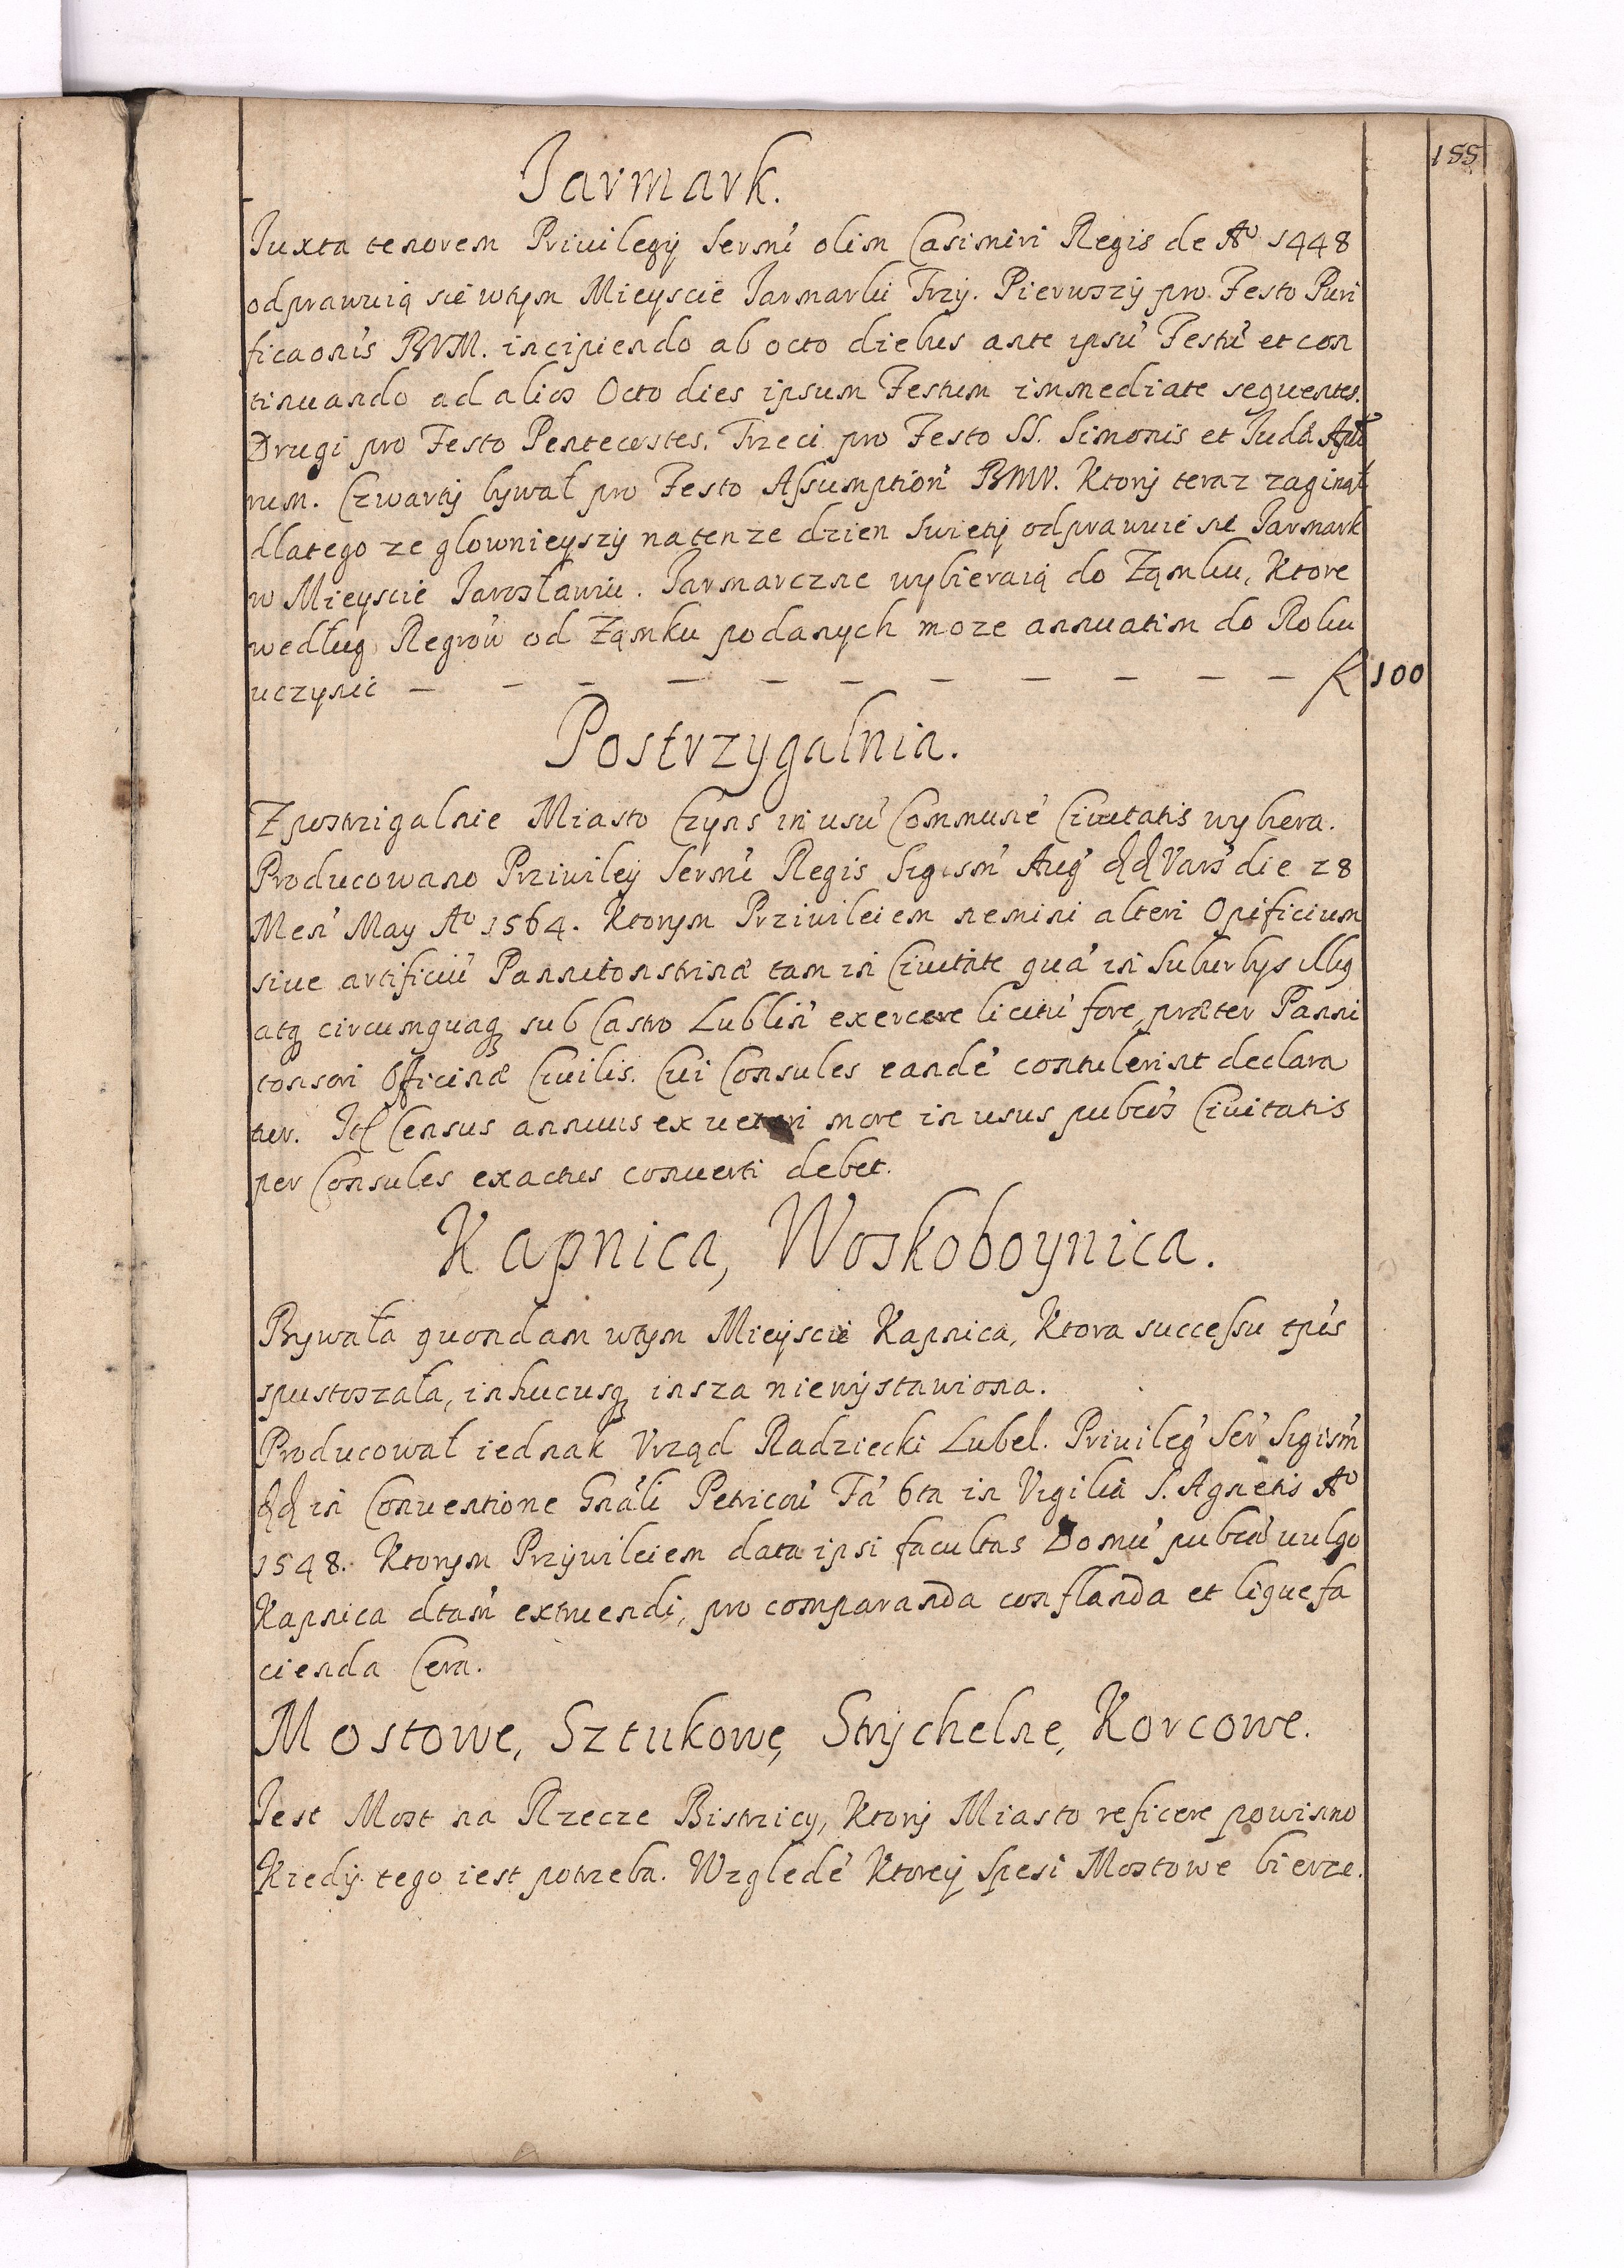 155
Jarmark.
Juxta tenorem Priuilegij Sermi olim Casimiri Regis de Aº 1448
odprawuią sie wtym Mieyscie Jarmarki Trzy. Pierwszy pro Festo Puri
ficaonis BVM. incipiendo ab octo diebus ante ipsu Festu et con
tinuando ad alios Octo dies ipsum Festum immediate sequentes.
Drugi pro Festo Pentecostes. Trzeci pro Festo SS. Simonis et Judæ Aptо
rum. Czwarty bywał pro Festo Assumption BMV. Ktory teraz zaginął
dlatego ze glownieyszy natenze dzien Swięty odprawuie sie Jarmark
w Mieyscie Jarosławiu. Jarmarczne wybieraią do Ząmku, Ktore
według Regrow od Ząmku podanych moze annuatim do Roku
uczynic — — — — — — — — — — — f 100
Postrzygalnia.
Z postrzigalnie Miasto Czyns in usu Commune Ciuitatis wybera.
Producowano Priuiley Sermi Regis Sigism Aug dd Vars die 28
Men May Aº 1564. Ktorym Prziuileiem nemini alteri Opificium
siue artificiu Pannitonstrinæ tam in Ciuitate qua in Suburbys illig
atq circumquaq sub Castro Lublin exercere licitu fore, præter Panni
tonsori Officinæ Ciuilis. Cui Consules eande contulerint declara
tur. Itl Census annuus ex ueteri more in usus pubcos Ciuitatis
per Consules exactus conuerti debet.
Kapnica, Woskoboynica.
Bywała quondam wtym Mieyscie Kapnica, Ktora successu tpis
spustoszała, inhucusq insza niewystawiona.
Producował iednak Vrząd Radziecki Lubel. Priuileg Ser Sigism
dd in Conuentione Gnali Petricou Fa 6ta in Vigilia S. Agnetis Aº
1548. Ktorym Przywileiem data ipsi facultas Domu pubca uulgo
Kapnica dtam extruendi, pro comparanda conflanda et liquefa
cienda Cera.
Mostowe, Sztukowe, Strychelne, Korcowe.
Jest Most na Rzecze Bistrzicy, Ktory Miasto reficere powinno
Kiedy tego iest potrzeba. Wzglede Ktorey Spesi Mostowe bierze.